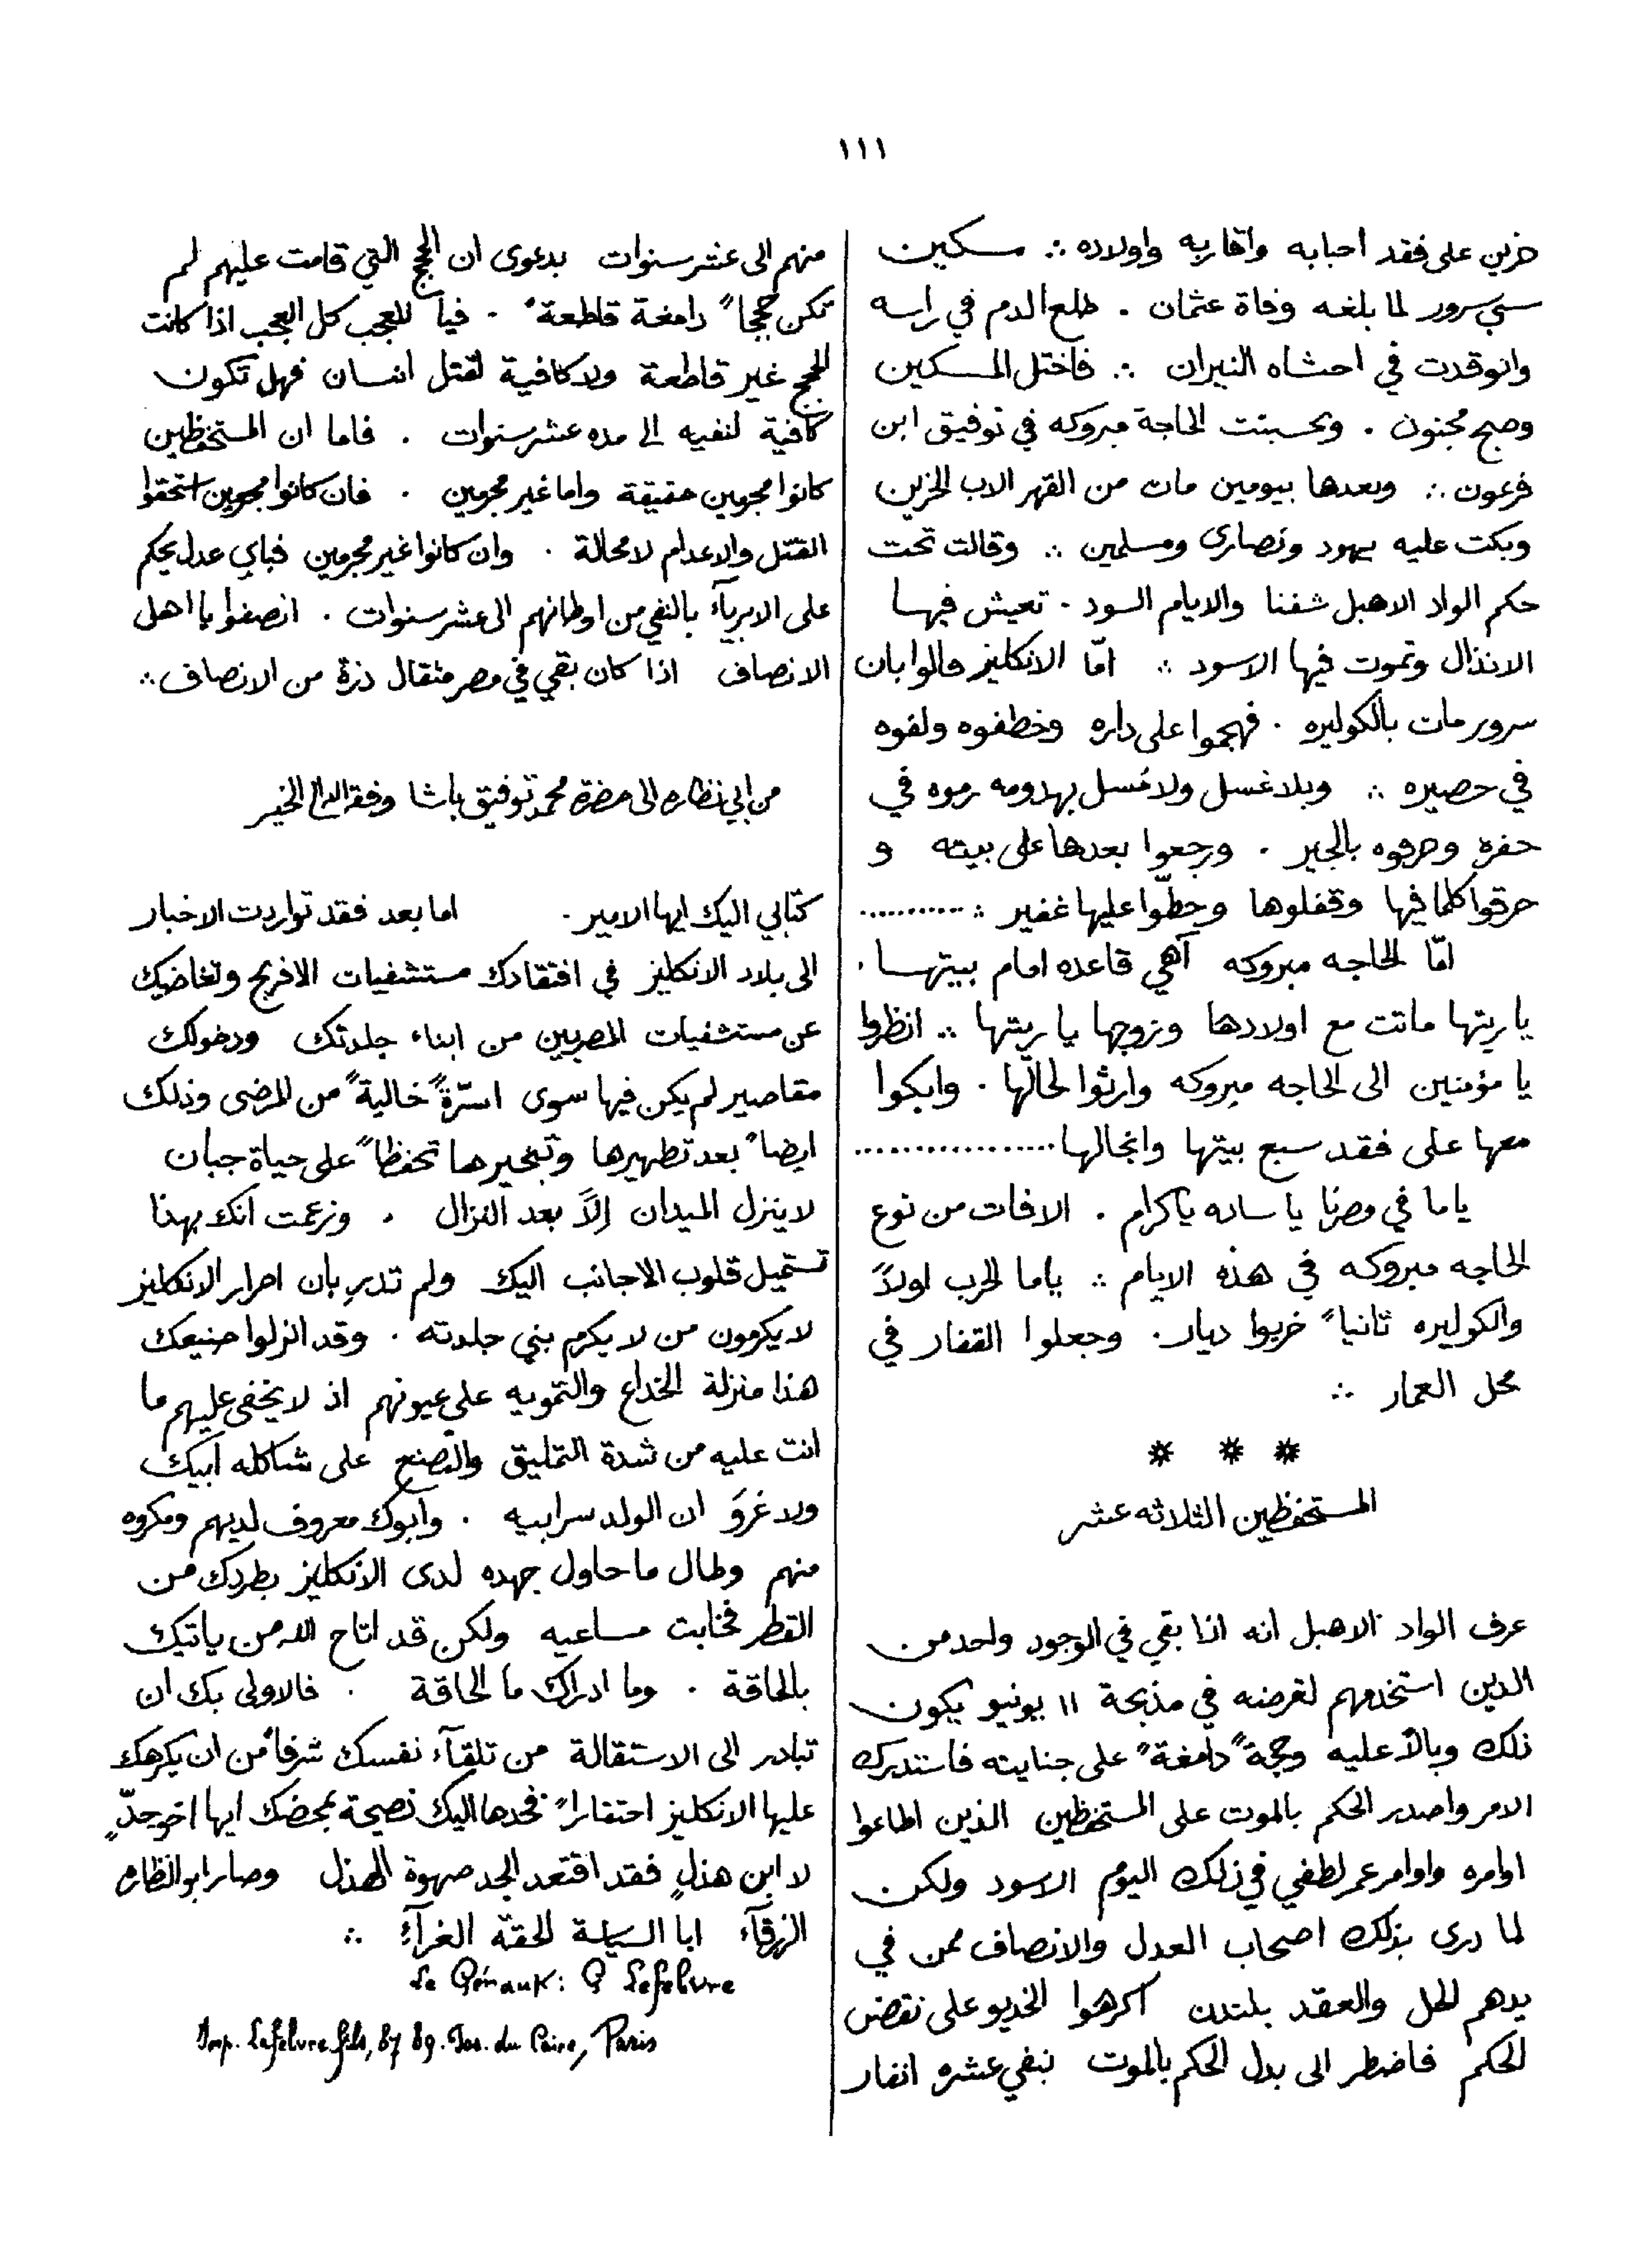 ١١١
حزين على فقد احبابه واقاربه واولاده ∴ مسكين
سي سرور لما بلغه وفاة عثمان . طلع الدم في راسه
وانوقدت في احشاه النيران ∴ فاختل المسكين
وصبح مجنون . وتحسبنت الحاجة مبروكه في توفيق ابن
فرعون ∴ وبعدها بيومين مات من القهر الاب الحزين
وبكت عليه يهود ونصارى ومسلمين ∴ وقالت تحت
حكم الواد الاهبل شفنا والايام السود . تعيش فيها
الانذال وتموت فيها الاسود ∴ امّا الانكليز قالوا بان
سرور مات بالكوليره . فهجموا على داره وخطفوه ولفوه
في حصيره ∴ وبلا غسل ولا غسل بهدومه رموه في
حفره وحرقوه بالجير . ورجعوا بعدها على بيته و
حرقوا كلما فيها وقفلوها وحطّوا عليها غفير ∴ ...........
امّا الحاجه مبروكه آهي قاعده امام بيتها .
يا ريتها ماتت مع اولادها وزوجها يا ريتها ∴ انظروا
يا مؤمنين الى الحاجه مبروكه وارثوا لحالها . وابكوا
معها على فقد سبع بيتها وانجالها .................
ياما في مصرنا يا ساده ياكرام . الافات من نوع
الحاجه مبروكه في هذه الايام ∴ ياما الحرب اولاً
والكوليره ثانياً خربوا ديار . وجعلوا القفار في
محل العمار ∴
* * *
المستحفظين الثلاثه عشر
عرف الواد الاهبل انه اذا بقي في الوجود واحد من
الذين استخدمهم لغرضه في مذبحة ١١ يونيو يكون
ذلك وبالاً عليه وحجةً دامغةً على جنايته فاستدرك
الامر واصدر الحكم بالموت على المستحفظين الذين اطاعوا
اوامره واوامر عمر لطفي في ذلك اليوم الاسود ولكن
لما درى بذلك اصحاب العدل والانصاف ممن في
يدهم الحل والعقد بلندن اكرهوا الخديو على نقض
الحكم فاضطر الى بدل الحكم بالموت بنفي عشره انفار
منهم الى عشر سنوات بدعوى ان الحجج التي قامت عليهم لم
تكن حججاً دامغة قاطعةً . فيا للعجب كل العجب اذا كانت
الحجج غير قاطعة ولا كافية لقتل انسان فهل تكون
كافية لنفيه الى مده عشر سنوات . فاما ان المستحفظين
كانوا مجرمين حقيقة واما غير مجرمين . فان كانوا مجرمين استحقوا
القتل والاعدام لا محالة . وان كانوا غير مجرمين فباي عدل يحكم
على الابرياء بالنفي من اوطانهم الى عشر سنوات . انصفوا يا اهل
الانصاف اذا كان بقي في مصر مثقال ذرة من الانصاف ∴
من ابي نظاره الى حضرة محمد توفيق باشا وفقه الله الى الخير
كتابي اليك ايها الامير . اما بعد فقد تواردت الاخبار
الى بلاد الانكليز في افتقادك مستشفيات الافرنج وتغاضيك
عن مستشفيات المصريين من ابناء جلدتك ودخولك
مقاصير لم يكن فيها سوى اسرّةً خاليةً من المرضى وذلك
ايضاً بعد تطهيرها وتبخيرها تحفظاً على حياة جبان
لا ينزل الميدان إلاّ بعد النزال . وزعمت انك بهذا
تستميل قلوب الاجانب اليك ولم تدرِ بان احرار الانكليز
لا يكرمون من لا يكرم بني جلدته . وقد انزلوا صنيعك
هذا منزلة الخداع والتمويه على عيونهم اذ لا يخفى عليهم ما
انت عليه من شدة التمليق والتصنع على شاكله ابيك
ولا غروَ ان الولد سر ابيه . وابوك معروف لديهم ومكروه
منهم وطال ما حاول جهده لدى الانكليز بطردك من
القطر فخابت مساعيه ولكن قد اتاح الله من ياتيك
بالحاقة . وما ادراك ما الحاقة . فالاولى بك ان
تبادر الى الاستقالة من تلقآء نفسك شرفاً من ان يكرهك
عليها الانكليز احتقاراً فخدها اليك نصيحة يمحضك ايها اخو جدّ
لا ابن هذلٍ فقد اقتعد الجد صهوة الهذل وصار ابو النظاره
الزرقآء ابا السياسة الحقّه الغرآءِ ∴
Le Gérant: G Lefebvre
Imp. Lefebvre fils, 87 89. Pas. du Caire, Paris